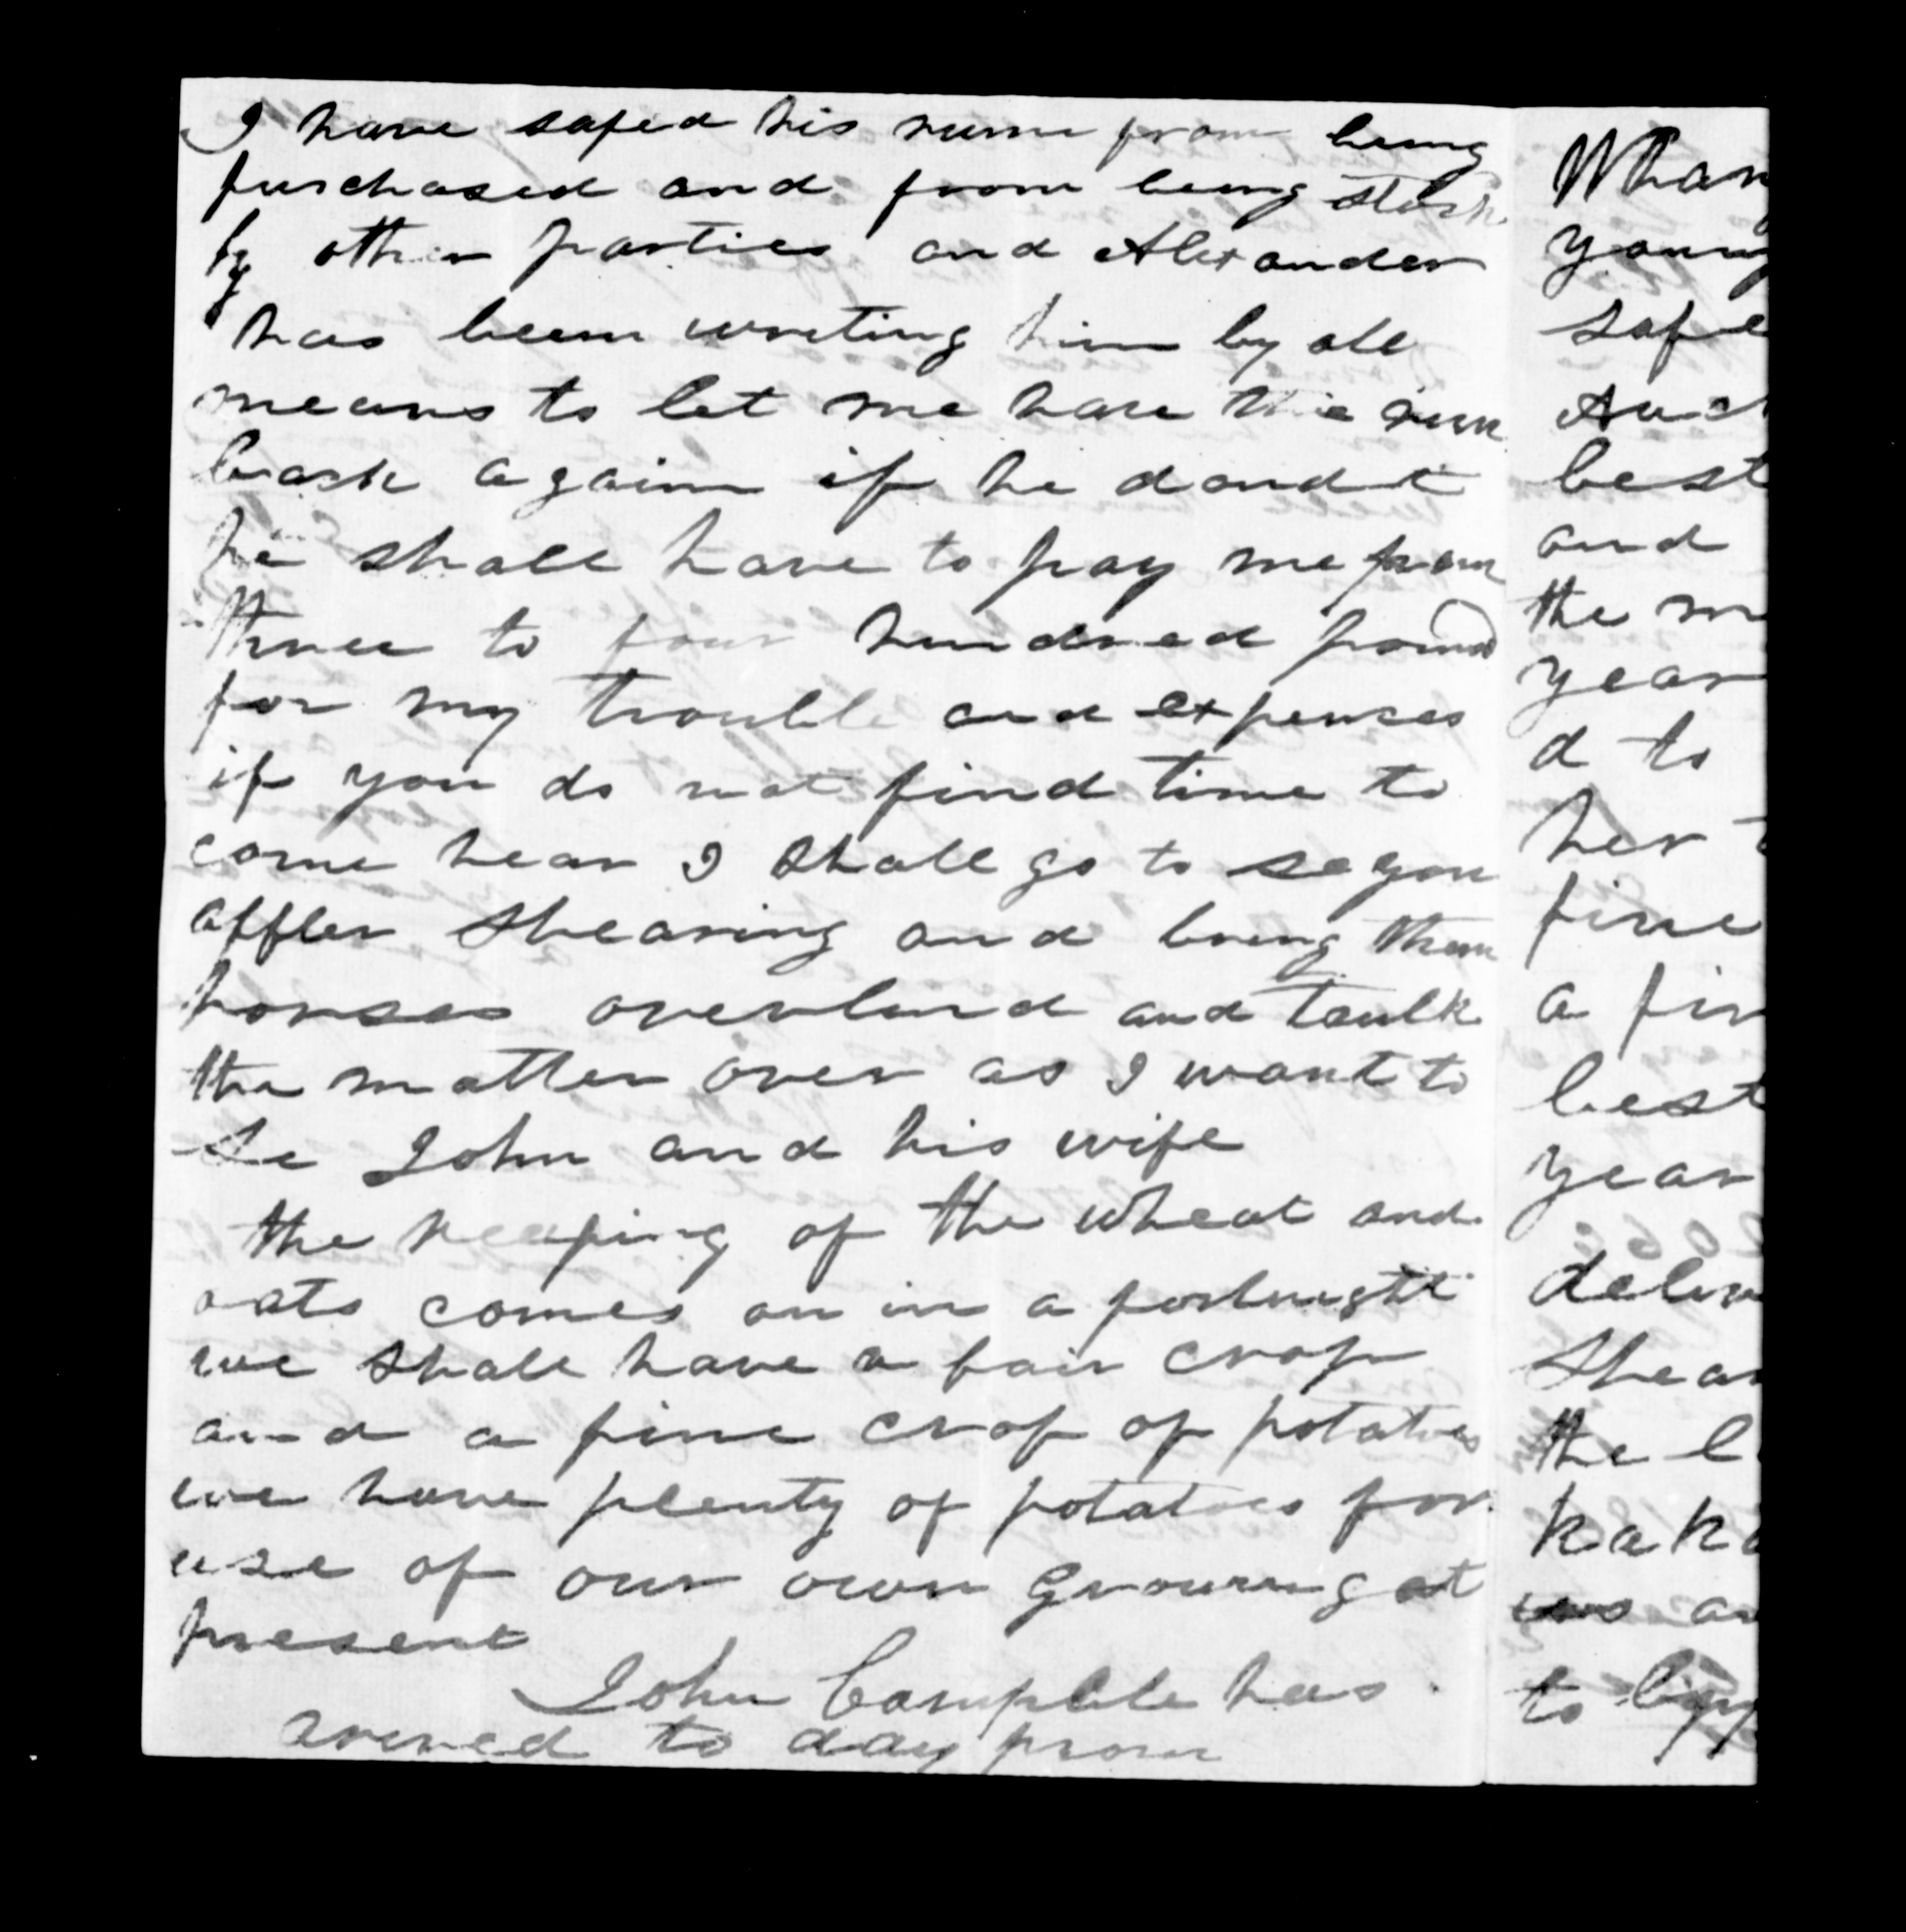 I have safed his runn from being
purchased and from being stock
by other parties and Alexander
has been writing him by all
means to let me have the runn
back again if he dondt
he shall have to pay me from
three to four hundred pound
for my trouble and expenses
if you do not find time to
come hear I shall go to se you
affter shearing and bring them
horses overland and taulk
the matter over as I want to
se John and his wife
the reaping of the wheat and
oats comes on in a fortnight
we shall have a fair crop
and a fine crop of potatoes
we have plenty of potatoes for
use of our own growing at
present
John Campble has
arived to day from
Whan
young
safe
best
and
the m
year
d to
her t
fine
a fin
best
year
deliv
Shear
the l
kak
us an
to